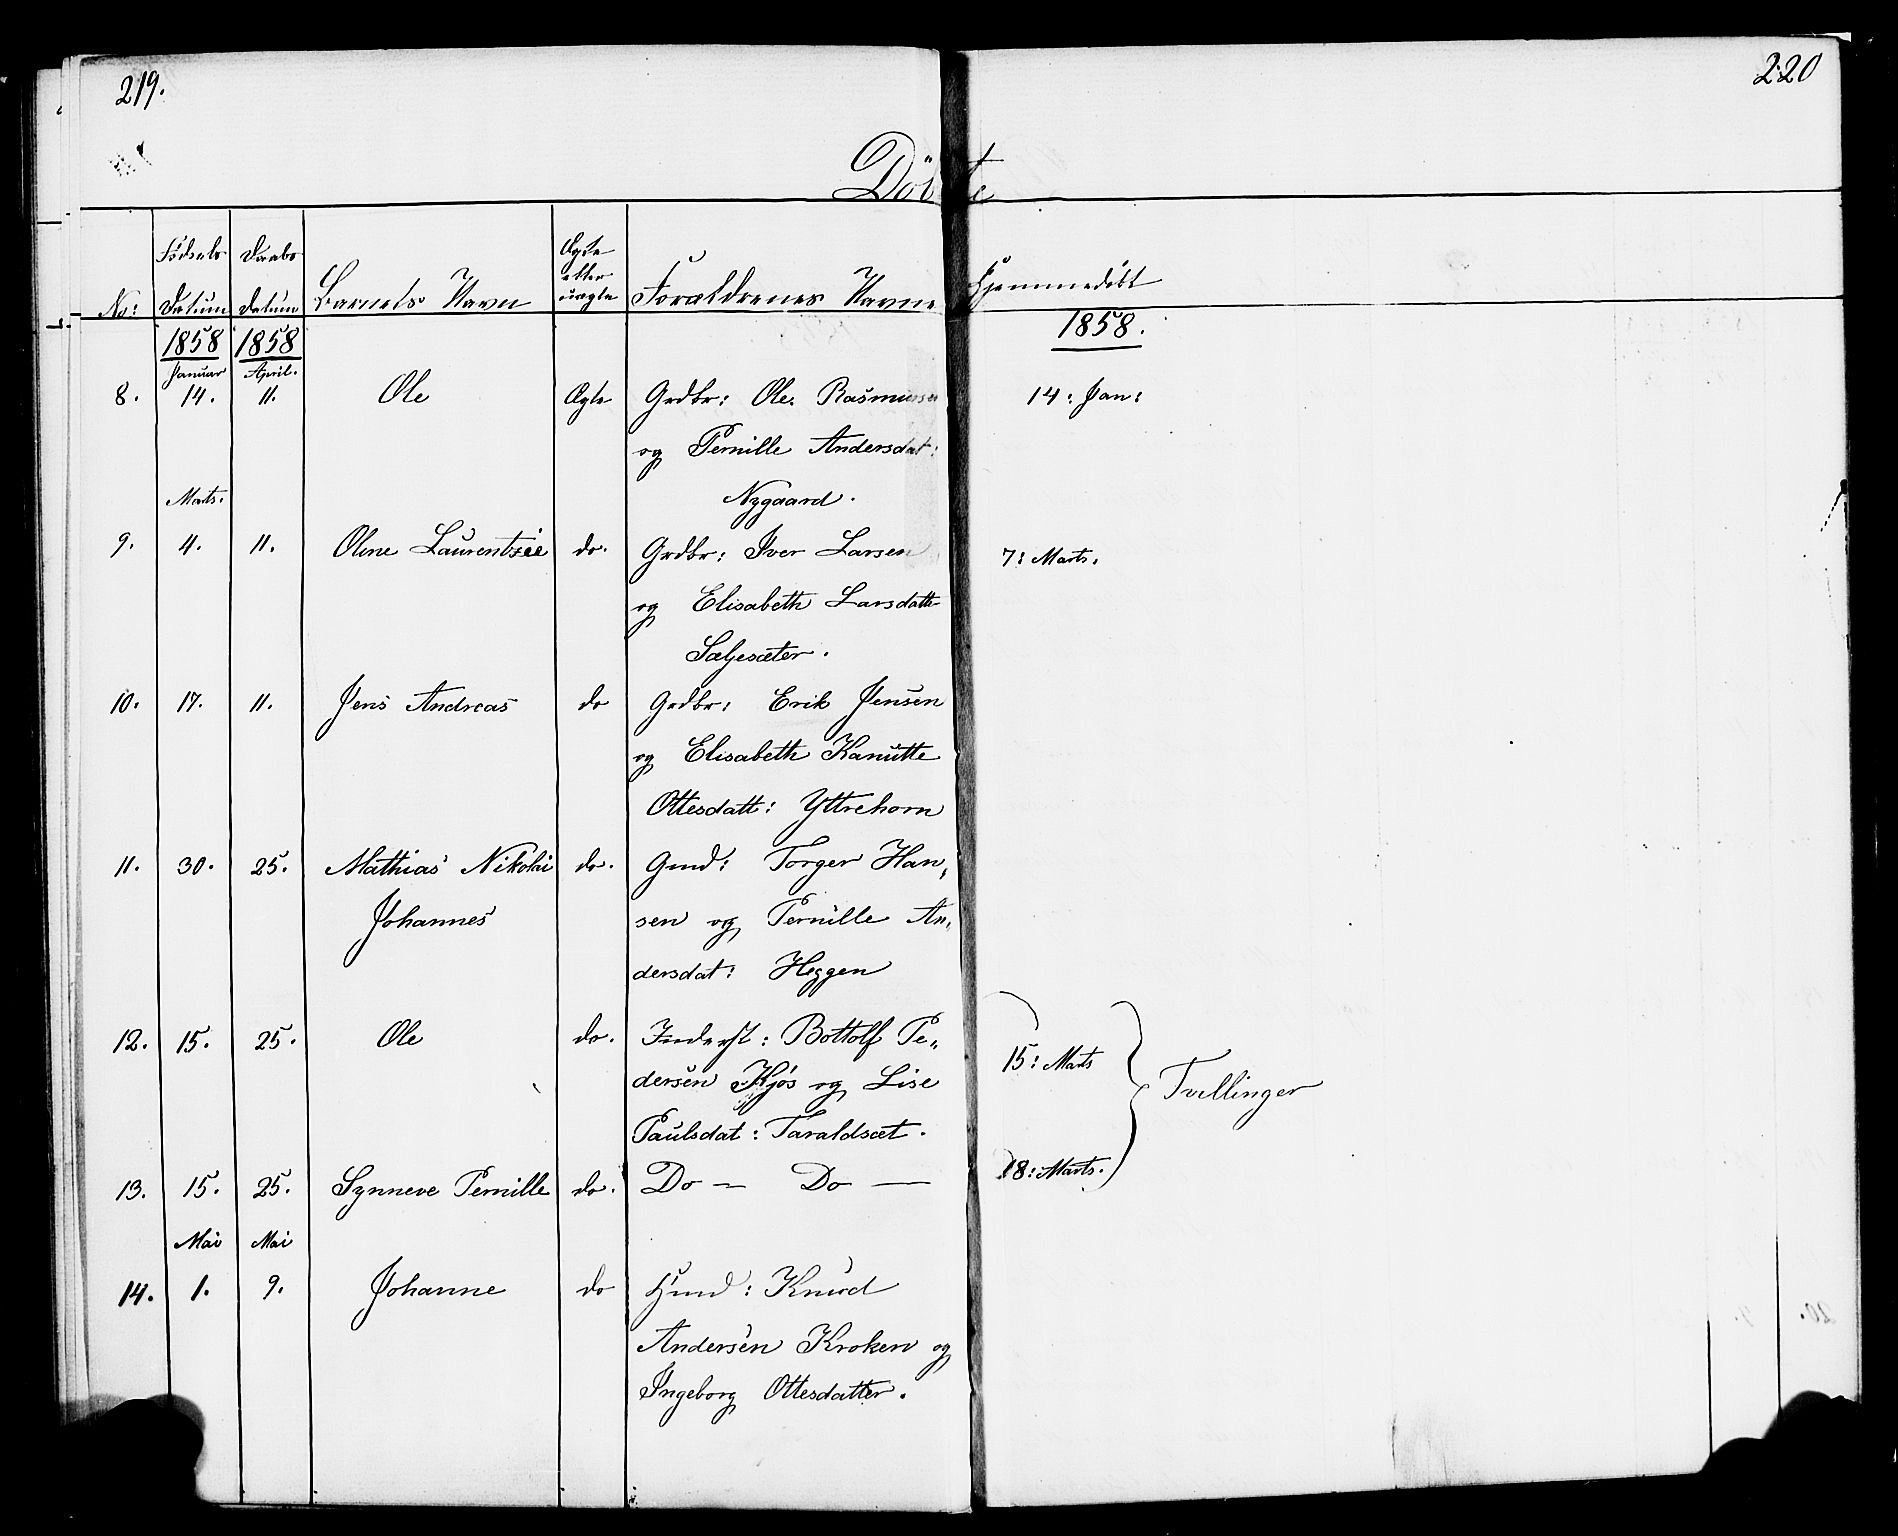 219.
220
Döbte
No:
Födsels
Datum
Daabs
Datum
Barnets Navn
Ægte
eller
uægte
Forældrenes Navne
Hjemmedöbt
1858
1858
1858.
Januar
April.
8. 14. 11. Ole Ægte Grdbr: Ole Rasmussen 14: Jan:
og Pernille Andersdat:
Marts. Nygaard.
9. 4. 11. Oline Laurentzie do. Grdbr: Iver Larsen 7: Marts.
og Elisabeth Larsdatt
Sæljesæter.
10. 17. 11. Jens Andreas do Grdbr: Erik Jensen
og Elisabeth Kanutte
Ottesdatt: Yttrehorn
11. 30. 25. Mathias Nikolai do. Gmd: Torger Han,
Johannes sen og Pernille An,
dersdat: Heggen
12. 15. 25. Ole do. Inderst: Bottolf Pe,, 15: Marts
dersen Kjös og Lise Tvillinger
Paulsdat: Taraldsæt.
13. 15. 25. Synneve Pernille do. Do — Do — 18: Marts.
Mai Mai
14. 1. 9. Johanne do Hmd: Knud
Andersen Kroken og
Ingeborg Ottesdatter.